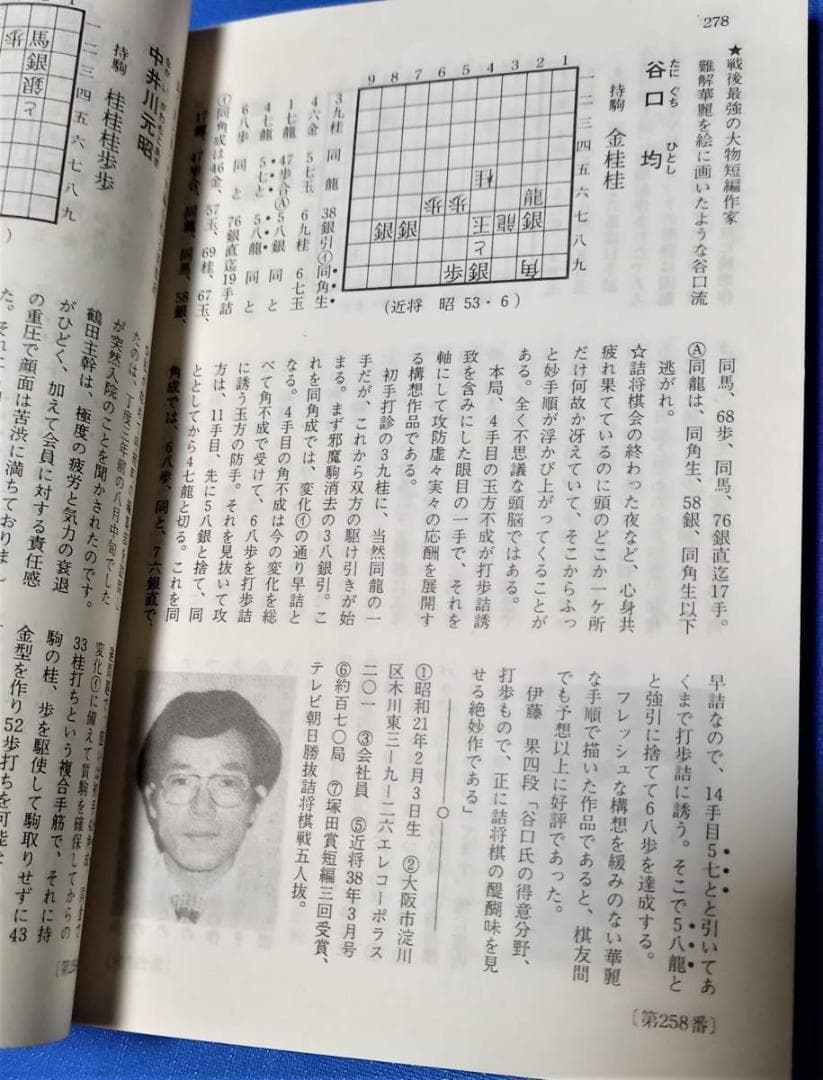 278
★戦後最強の大物短編作家
難解華麗を絵に画いたような谷口流
谷口 均
たに ぐち ひとし
持駒 金桂桂
9 8 7 6 5 4 3 2 1
一二三四五六七八九
桂
龍
歩
歩
玉
龍
銀
銀
銀
と
歩
銀
角
(近将 昭53・6)
3九桂 同龍 38銀引㋑同角生
4六金 5七玉 6九桂 6七玉
1七龍 47歩合Ⓐ5八銀 同と
4七龍 5七と 5八龍 同と
6八歩 同と 76銀直迄19手詰
㋑同角成は46金、57玉、69桂、67玉、
17龍、47歩合、同龍、同馬、58銀、
同馬、68歩、同馬、76銀直迄17手。
Ⓐ同龍は、同角生、58銀、同角生以下
逃がれ。
☆詰将棋会の終わった夜など、心身共
疲れ果てているのに頭のどこか一ケ所
だけ何故か冴えていて、そこからふっ
と妙手順が浮かび上がってくることが
ある。全く不思議な頭脳ではある。
本局、4手目の玉方不成が打歩詰誘
致を含みにした眼目の一手で、それを
軸にして攻防虚々実々の応酬を展開す
る構想作品である。
初手打診の3九桂に、当然同龍の一
手だが、これから双方の駆け引きが始
まる。まず邪魔駒消去の3八銀引。こ
れを同角成では、変化㋑の通り早詰と
なる。4手目の角不成は今の変化を総
べて角不成で受けて、6八歩を打歩詰
に誘う玉方の防手。それを見抜いて攻
方は、11手目、先に5八銀と捨て、同
ととしてから4七龍と切る。これを同
角成では、6八歩、同と、7六銀直で、
早詰なので、14手目5七とと引いてあ
くまで打歩詰に誘う。そこで5八龍と
と強引に捨てて6八歩を達成する。
フレッシュな構想を緩みのない華麗
な手順で描いた作品であると、棋友間
でも予想以上に好評であった。
伊藤 果四段「谷口氏の得意分野、
打歩もので、正に詰将棋の醍醐味を見
せる絶妙作である」
①昭和21年2月3日生 ②大阪市淀川
区木川東三ー九ー二六エレコーポラス
二〇一 ③会社員 ⑤近将38年3月号
⑥約百七〇局 ⑦塚田賞短編三回受賞、
テレビ朝日勝抜詰将棋戦五人抜。
〔第258番〕
中井川元昭
持駒 桂桂桂歩歩
一二三四五六七八九
歩
馬
銀
銀
と
たのは、丁度三年前の八月中旬でした
が突然入院のことを聞かされたのです。
鶴田主幹は、極度の疲労と気力の衰退
がひどく、加えて会員に対する責任感
の重圧で顔面は苦渋に満ちておりまし
変化㋑に備えて質駒を確保してからの
33桂打ちという複合手筋で、それに持
駒の桂、歩を駆使して駒取りせずに43
金型を作り52歩打ちを可能